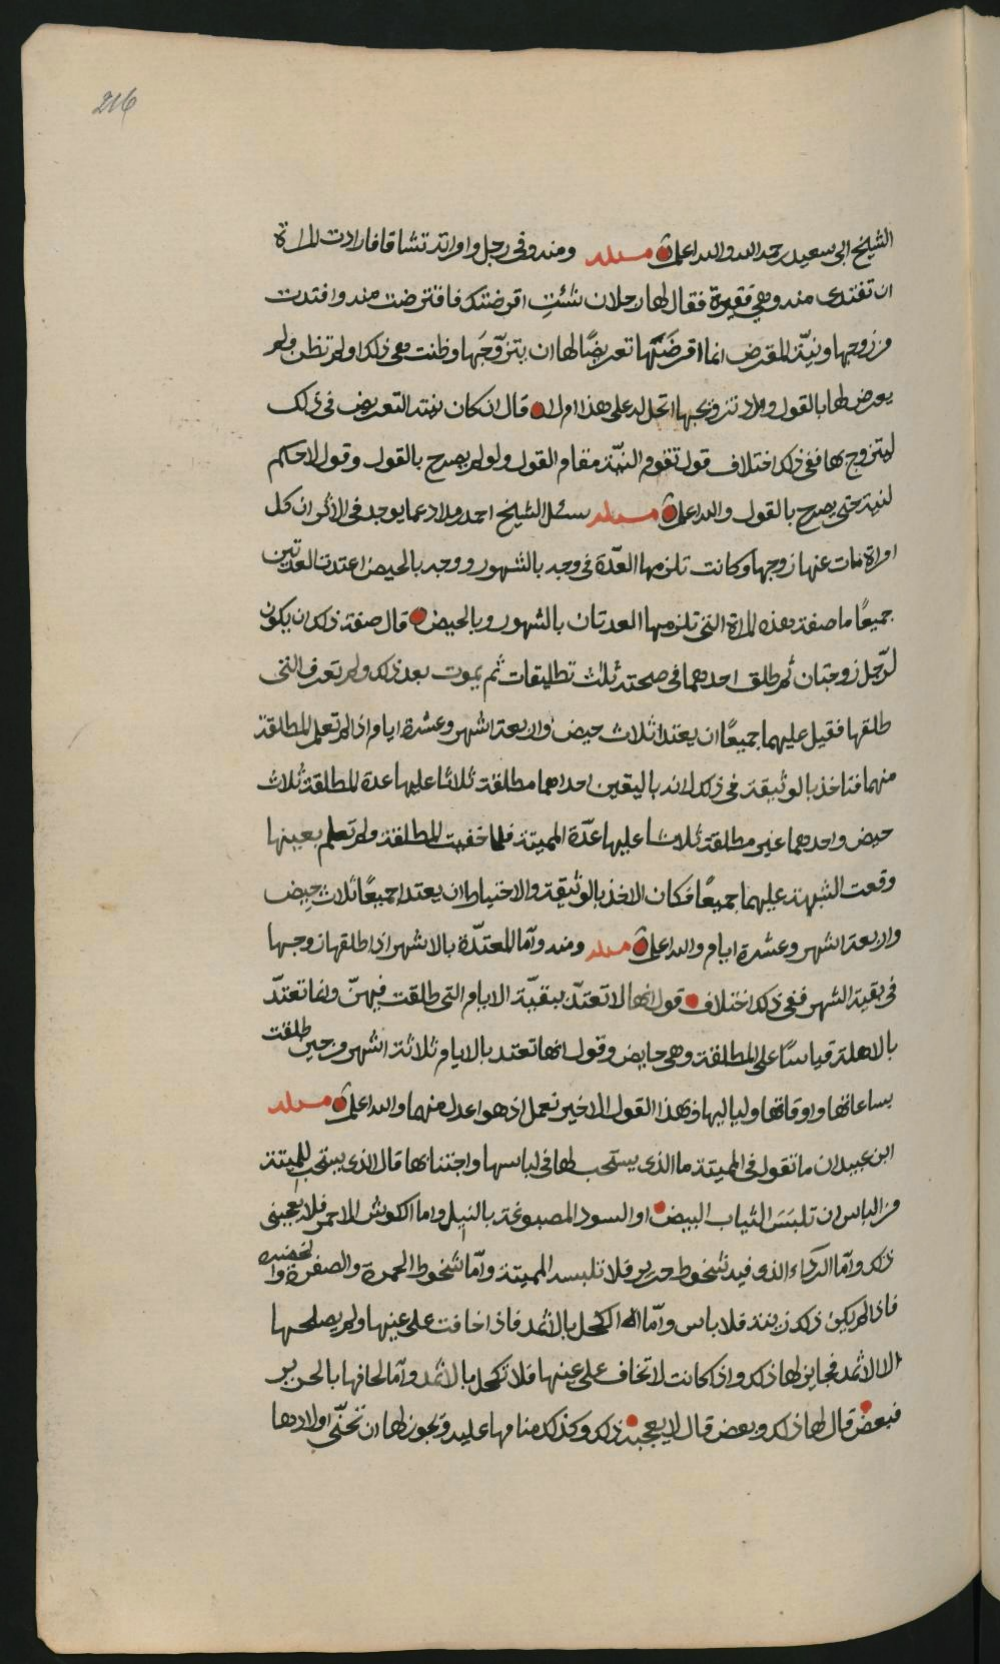 216
الشيخ ابي سعيد رحمه الله والله اعلم مسئلة ومنه وفي رجل وامراته تشاققا فارادت المراة
ان تفتدي منه وهي فقيرة فقال لها رجل ان شئتِ اقرضتك فاقترضت منه وافتدت
من زوجها ونيّة المقرض انما اقرضَتها تعريضًا لها ان يتزوّجَها وظنت هي ذلك او لم تظن ولم
يعرض لها بالقول واراد تزويجها اتحل له على هذا ام لا قال ان كان نيته التعريض في ذلك
ليتزوج بها ففي ذلك اختلاف قول تقوم النيّة مقام القول ولو لم يصرح بالقول وقول لا حكم
لنية حتى يصرح بالقول والله اعلم مسئلة سئل الشيخ احمد مداد عما يوجد في الاثر ان كل
امراة مات عنها زوجها وكانت تلزمها العدّة في وجه بالشهور ووجه بالحيض اعتدت العدتين
جميعًا ما صفة هذه المراة التي تلزمها العدتان بالشهور وبالحيض قال صفة ذلك ان يكون
لرّجل زوجتان ثم طلق احدهما في صحته ثلث تطليقات ثم يموت بعد ذلك ولم تعرف التي
طلقها فقيل عليهما جميعًا ان يعتدا ثلاث حيض واربعة اشهر وعشرة ايام اذا لم تعلم المطلقة
منهما فتاخذ بالوثيقة في ذلك لانه باليقين احداهما مطلقة ثلاثا عليها عدة المطلقة ثلاث
حيض واحدهما غير مطلقة ثلاثا عليها عدّة المميتة فلما خفيت المطلقة ولم تعلم بعينها
وقعت الشبهة عليهما جميعًا فكان الاخذ بالوثيقة والاحتياط ان يعتدا جميعًا ثلاث حيض
واربعة اشهر وعشرة ايام والله اعلم مسئلة ومنه وأما المعتدّة بالاشهر اذا طلقها زوجها
في بقية الشهر ففي ذلك اختلاف قول انها لا تعتدّ ببقيّة الايام التي طلقت فيهنّ وانما تعتدّ
بالاهلة قياسًا على المطلقة وهي حايض وقول انها تعتد بالايام ثلاثة اشهر من حين طلقت
بساعاتها واوقاتها ولياليها فهذا القول الاخير نعمل اذ هو اعدل منهما والله اعلم مسئلة
ابن عبيدان ما تقول في المميتة ما الذي يستحب لها في لباسها واجتنابها قال الذي يستحب للميتة
من الباس ان تلبَسَ الثياب البيض او السود المصبوغة بالنيل واما الكوش الاحمر فلا يعجبني
ذلك وأما الردَاء الذي فيه شخوط حرير فلا تلبسه المميتة وأمّا شخوط الحمرة والصفرة والخضرة
فاذا لم يكن ذلك زينة فلا باس وأمّا الكحل بالاثمد فاذا خافت على عينها ولم يصلحها
الا الاثمد فجايز لها ذلك واذا كانت لا تخاف على عينها فلا تكحل بالاثمد وأما لحافها بالحرير
فبعض قال لها ذلك وبعض قال لا يعجبه ذلك وكذلك منامها عليه ويجوز لها ان تحنّي اولادها